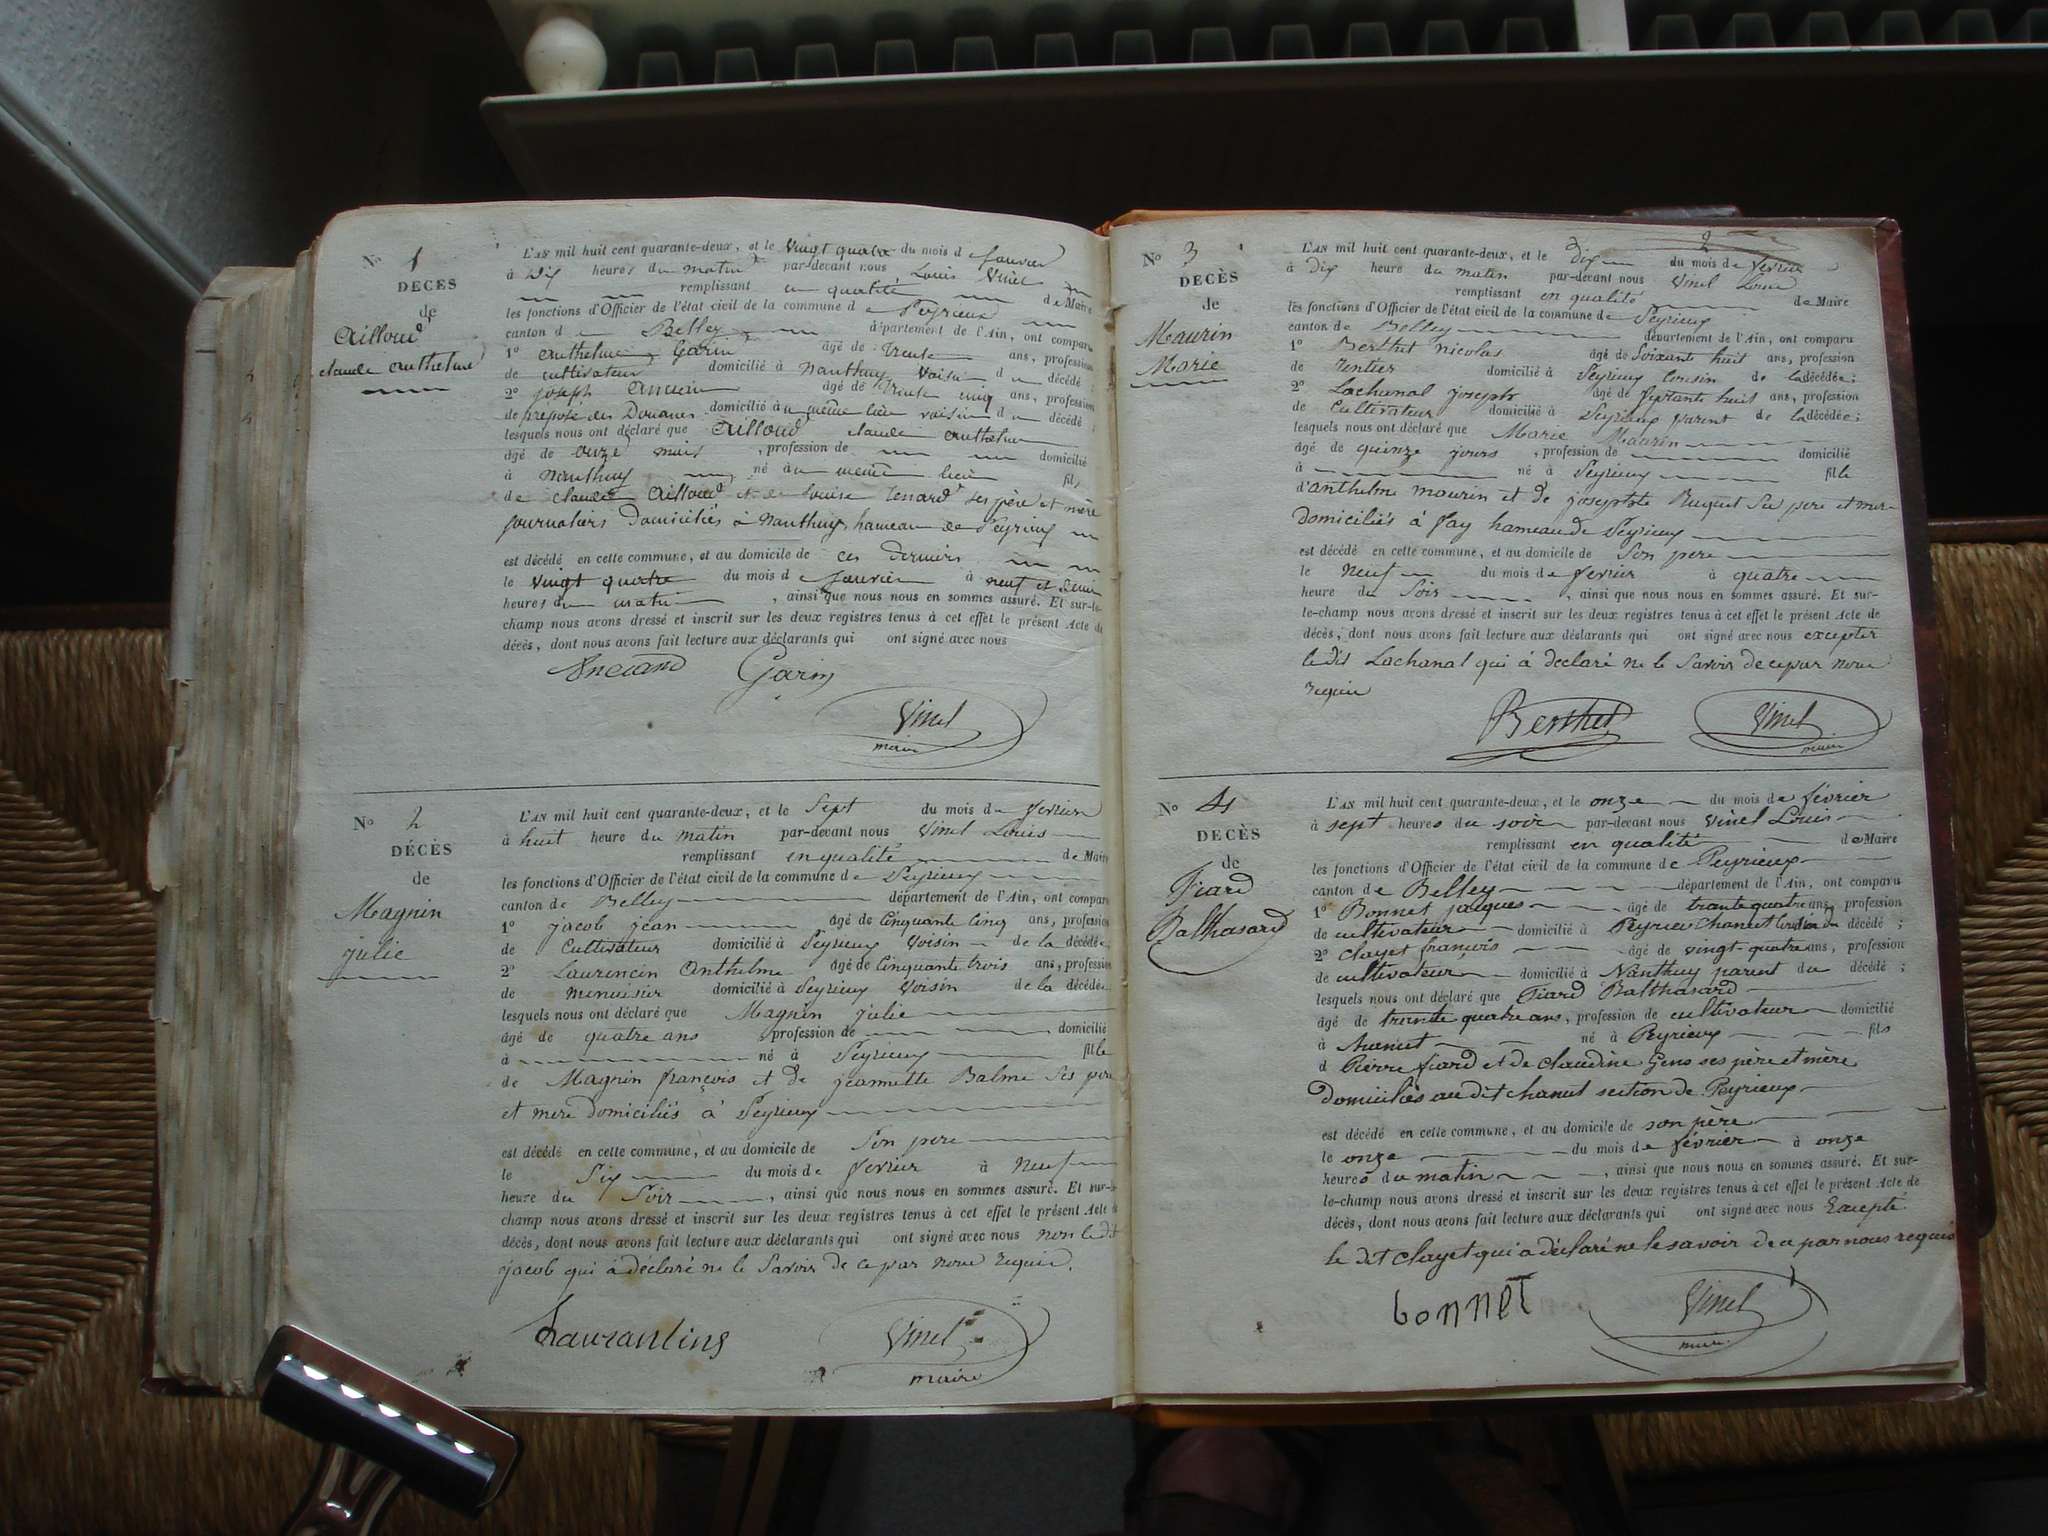 No 1
DECES
de
Ailloud
claude anthelme
L'AN mil huit cent quarante-deux, et le vingt quatre du mois de Janvier
à Dix heures du matin par-devant nous Louis Vinel
remplissant en qualité de Maire
les fonctions d'Officier de l'état civil de la commune de Peyrieux
canton de Belley département de l'Ain, ont comparu
1o anthelme Garin âgé de Trente ans, profession
de cultivateur domicilié à Nanthuy voisin du décédé ;
2o joseph Anciau âgé de Trente cinq ans, profession
de préposé des Douanes domicilié à u même lieu voisin du décédé ;
lesquels nous ont déclaré que Ailloud claude anthelme
âgé de onze mois , profession de domicilié
à Nanthuy né à u même lieu fils
de claude Ailloud et de Louise Tenard ses père et mère
journaliers domiciliés à Nanthuy hameau de Peyrieux
est décédé en cette commune, et au domicile de ces derniers
le vingt quatre du mois de Janvier à neuf et demi
heures du matin , ainsi que nous nous en sommes assuré. Et sur-le-
champ nous avons dressé et inscrit sur les deux registres tenus à cet effet le présent Acte de
décès, dont nous avons fait lecture aux déclarants qui ont signé avec nous
Garin
Vinel
maire
No 2
DÉCÈS
de
Magnin
julie
L'AN mil huit cent quarante-deux, et le sept du mois de fevrier
à huit heure du matin par-devant nous Vinel Louis
remplissant en qualité de Maire
les fonctions d'Officier de l'état civil de la commune de Peyrieux
canton de Belley département de l'Ain, ont comparu
1o jacob jean âgé de Cinquante Cinq ans, profession
de Cultivateur domicilié à Peyrieux Voisin de la décédée
2o Laurencin Anthelme âgé de Cinquante trois ans, profession
de menuisier domicilié à Peyrieux Voisin de la décédée
lesquels nous ont déclaré que Magnin julie
âgé de quatre ans profession de domicilié
à né à Peyrieux fille
de Magnin françois et de jeannette Balme ses pere
et mere domiciliés à Peyrieux
est décédé en cette commune, et au domicile de Son pere
le Six du mois de fevrier à Neuf
heure du Soir , ainsi que nous nous en sommes assuré. Et sur-le-
champ nous avons dressé et inscrit sur les deux registres tenus à cet effet le présent Acte de
décès, dont nous avons fait lecture aux déclarants qui ont signé avec nous non ledit
jacob qui à déclaré ne le Savoir de ce par nous requis.
Vinel
maire
2
No 3
DECÈS
de
Maurin
Marie
L'AN mil huit cent quarante-deux, et le dix du mois de fevrier
à dix heure du matin par-devant nous Vinel Louis
remplissant en qualité de Maire
les fonctions d'Officier de l'état civil de la commune de Peyrieux
canton de Belley département de l'Ain, ont comparu
1o Berthet Nicolas âgé de Soixante huit ans, profession
de rentier domicilié à Peyrieux Cousin de la décédée ;
2o Lachanal joseph âgé de Septante huit ans, profession
de Cultivateur domicilié à Peyrieux parent de la décédée ;
lesquels nous ont déclaré que Marie Maurin
âgé de quinze jours , profession de domicilié
à né à Peyrieux fille
d'anthelme maurin et de josephte Buquet Ses pere et mere
domiciliés à fay hameau de Peyrieux
est décédé en cette commune, et au domicile de Son pere
le Neuf du mois de fevrier à quatre
heure du Soir , ainsi que nous nous en sommes assuré. Et sur-
le-champ nous avons dressé et inscrit sur les deux registres tenus à cet effet le présent Acte de
décès, dont nous avons fait lecture aux déclarants qui ont signé avec nous excepter
ledit Lachanal qui à declaré ne le Savoir de ce par nous
requis
Berthet
Vinel
maire
No 4
DECÈS
de
Fiard
Balthasard
L'AN mil huit cent quarante-deux, et le onze du mois de février
à sept heures du soir par-devant nous Vinel Louis
remplissant en qualité de Maire
les fonctions d'Officier de l'état civil de la commune de Peyrieux
canton de Belley département de l'Ain, ont comparu
1o Bonnet jacques âgé de trante quatre ans, profession
de cultivateur domicilié à Peyrieu chanut Cousin du décédé ;
2o Clayet françois âgé de vingt-quatre ans, profession
de cultivateur domicilié à Nanthuy parent du décédé ;
lesquels nous ont déclaré que Fiard Balthasard
âgé de trante quatre ans, profession de cultivateur domicilié
à chanut né à Peyrieux fils
d Pierre fiard et de Claudine Gens ses père et mère
Domiciliés au dit chanut section de Peyrieux
est décédé en cette commune, et au domicile de son père
le onze du mois de février à onze
heures du matin , ainsi que nous nous en sommes assuré. Et sur-
le-champ nous avons dressé et inscrit sur les deux registres tenus à cet effet le présent Acte de
décès, dont nous avons fait lecture aux déclarants qui ont signé avec nous Excepté
le dit clayet qui a déclaré ne le savoir de ce par nous requis
bonnet
Vinel
maire